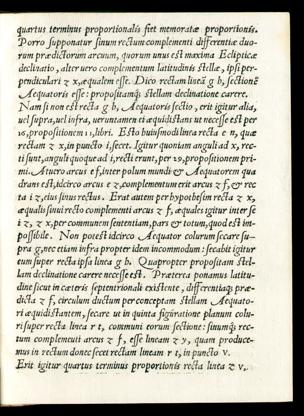 quartus terminus proportionalis fiet memoratæ proportionis.
Porro supponatur sinum rectum complementi differentiæ duo-
rum prædictorum arcuum, quorum unus est maxima Eclipticæ
declinatio, alter uero complementum latitudinis stellæ, ipsi per-
pendiculari z x, æqualem esse. Dico rectam lineã g b, sectionẽ
Aequatoris esse: propositamq́; stellam declinatione carere.
Nam si non est recta g b, Aequatoris sectio, erit igitur alia,
uel supra, uel infra, ueruntamen ei æquidistans ut necesse est per
16, propositionem 11, libri. Esto huiusmodi linea recta e n, quæ
rectam z x, in puncto i, secet. Igitur quoniam anguli ad x, rec-
ti sunt, anguli quoque ad i, recti erunt, per 29, propositionem pri-
mi. At uero arcus e f, inter polum mundi & Aequatorem qua
drans est, idcirco arcus e z, complementum erit arcus z f, & rec
ta i z, eius sinus rectus. Erat autem per hypothesim recta z x,
æqualis sinui recto complementi arcus z f, æquales igitur inter se
i z, z x, per communem sententiam, pars & totum, quod est im-
possibile. Non potest idcirco Aequator colurum secare su-
pra g, nec etiam infra propter idem incommodum: secabit igitur
eum super recta ipsa linea g b. Quapropter propositam stel-
lam declinatione carere necesse est. Præterea ponamus latitu-
dine sicut in cæteris septentrionali existente, differentiaq́; præ-
dicta z f, circulum ductum per conceptam stellam Aequato-
ri æquidistantem, secare ut in quinta figuratione planum colu-
ri super recta linea r t, communi eorum sectione: sinumq́; rec-
tum complementi arcus z f, esse lineam z y, quam produce-
mus in rectum donec secet rectam lineam r t, in puncto v.
Erit igitur quartus terminus proportionis recta linea z v,